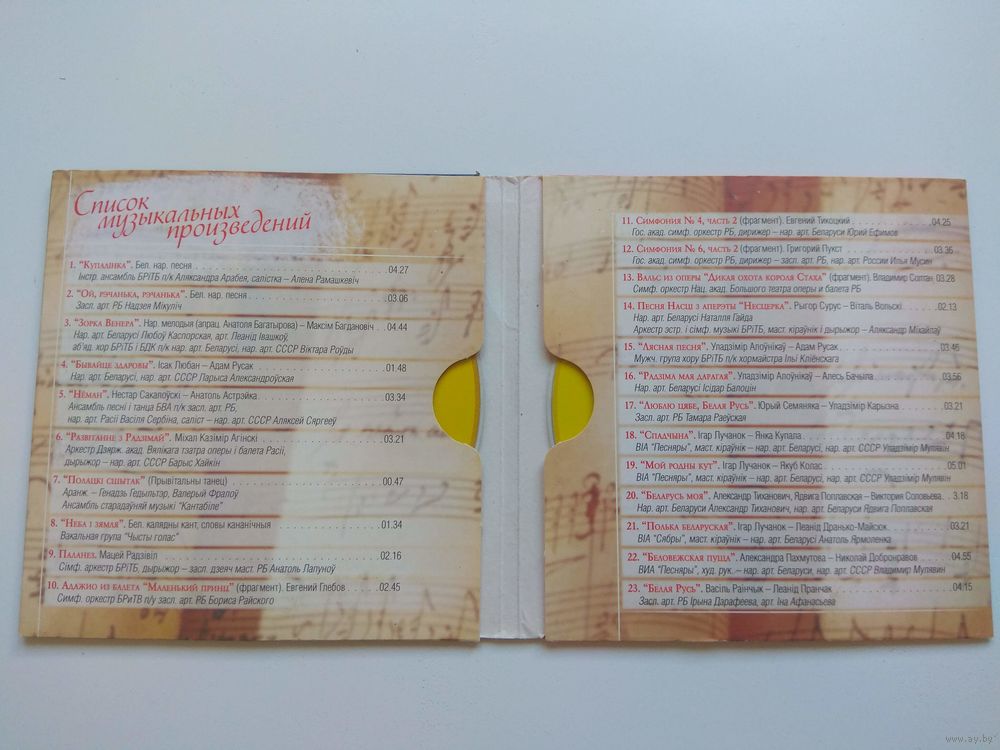 Список
музыкальных
произведений
1. "Купалінка". Бел. нар. песня 04.27
Інстр. ансамбль БРіТБ п/к Аляксандра Арабея, салістка – Алена Рамашкевіч
2. "Ой, рэчанька, рэчанька". Бел. нар. песня 03.06
Засл. арт. РБ Надзея Мікуліч
3. "Зорка Венера". Нар. мелодыя (апрац. Анатоля Багатырова) – Максім Багдановіч 04.44
Нар. арт. Беларусі Любоў Каспорская, арт. Леанід Івашкоў,
аб'яд. хор БРіТБ і БДК п/к нар. арт. Беларусі, нар. арт. СССР Віктара Роўды
4. "Бывайце здаровы". Ісак Любан – Адам Русак 01.48
Нар. арт. Беларусі, нар. арт. СССР Ларыса Александроўская
5. "Нёман". Нестар Сакалоўскі – Анатоль Астрэйка 03.34
Ансамбль песні і танца БВА п/к засл. арт. РБ,
нар. арт. Расіі Васіля Сербіна, саліст – нар. арт. СССР Аляксей Сяргееў
6. "Развітанне з Радзімай". Міхал Казімір Агінскі 03.21
Аркестр Дзярж. акад. Вялікага тэатра оперы і балета Расіі,
дырыжор – нар. арт. СССР Барыс Хайкін
7. "Полацкі сшытак" (Прывітальны танец) 00.47
Аранж. – Генадзь Гедыльтэр, Валерый Фралоў
Ансамбль старадаўняй музыкі "Кантабіле"
8. "Неба і зямля". Бел. калядны кант, словы кананічныя 01.34
Вакальная група "Чысты голас"
9. Паланез. Мацей Радзівіл 02.16
Сімф. аркестр БРіТБ, дырыжор – засл. дзеяч маст. РБ Анатоль Лапуноў
10. Адажио из балета "Маленький принц" (фрагмент). Евгений Глебов 02.45
Симф. оркестр БРиТВ п/у засл. арт. РБ Бориса Райского
11. Симфония № 4, часть 2 (фрагмент). Евгений Тикоцкий 04.25
Гос. акад. симф. оркестр РБ, дирижер – нар. арт. Беларуси Юрий Ефимов
12. Симфония № 6, часть 2 (фрагмент). Григорий Пукст 03.36
Гос. акад. симф. оркестр РБ, дирижер – засл. арт. РБ, нар. арт. России Илья Мусин
13. Вальс из оперы "Дикая охота короля Стаха" (фрагмент). Владимир Солтан 03.28
Симф. оркестр Нац. акад. Большого театра оперы и балета РБ
14. Песня Насці з аперэты "Несцерка". Рыгор Сурус – Віталь Вольскі 02.13
Нар. арт. Беларусі Наталля Гайда
Аркестр эстр. і сімф. музыкі БРіТБ, маст. кіраўнік і дырыжор – Аляксандр Міхайлаў
15. "Лясная песня". Уладзімір Алоўнікаў – Адам Русак 03.46
Мужч. група хору БРіТБ п/к хормайстра Ільі Кліёнскага
16. "Радзіма мая дарагая". Уладзімір Алоўнікаў – Алесь Бачыла 03.56
Нар. арт. Беларусі Ісідар Балоцін
17. "Люблю цябе, Белая Русь". Юрый Семяняка – Уладзімір Карызна 03.21
Засл. арт. РБ Тамара Раеўская
18. "Спадчына". Ігар Лучанок – Янка Купала 04.18
ВІА "Песняры", маст. кіраўнік – нар. арт. Беларусі, нар. арт. СССР Уладзімир Мулявін
19. "Мой родны кут". Ігар Лучанок – Якуб Колас 05.01
ВІА "Песняры", маст. кіраўнік – нар. арт. Беларусі, нар. арт. СССР Уладзімир Мулявін
20. "Беларусь моя". Александр Тиханович, Ядвига Поплавская – Виктория Соловьева 3.18
Нар. арт. Беларуси Александр Тиханович, нар. арт. Беларуси Ядвига Поплавская
21. "Полька беларуская". Ігар Лучанок – Леанід Дранько-Майсюк 03.21
ВІА "Сябры", маст. кіраўнік – нар. арт. Беларусі Анатоль Ярмоленка
22. "Беловежская пуща". Александра Пахмутова – Николай Добронравов 04.55
ВИА "Песняры", худ. рук. – нар. арт. Беларуси, нар. арт. СССР Владимир Мулявин
23. "Белая Русь". Васіль Раінчык – Леанід Пранчак 04.15
Засл. арт. РБ Ірына Дарафеева, арт. Іна Афанасьева
www.ay.by